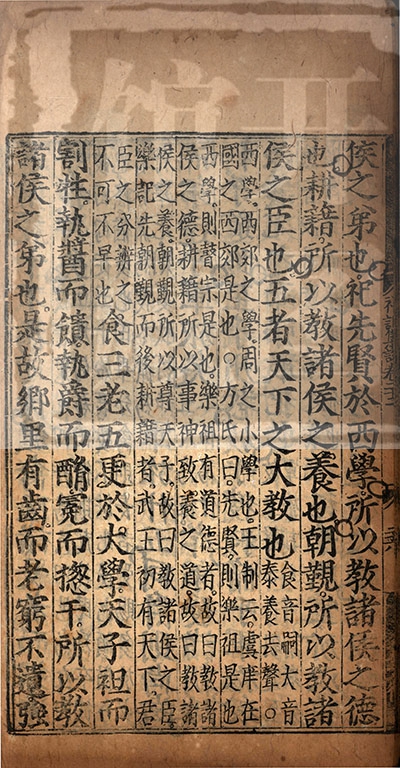 侯之弟也。祀先賢於西學。所以教諸侯之德
也。耕藉。所以教諸侯之養也。朝覲。所以教諸
侯之臣也。五者天下之大教也
食音嗣大音
泰養去聲。
西學。西郊之學。周之小學也。王制云。虞庠在
國之西郊是也。○方氏曰。先賢則樂祖是也
西學。則瞽宗是也。樂祖有道德者。故曰教諸
侯之德。耕藉所以事神致養之道。故曰教諸
侯之養。朝覲所以尊天子。故曰教諸侯之臣。
樂記先朝覲而後耕藉者。武王初有天下。君
臣之分辨之
不可不早也
食三老五更於大學。天子袒而
割牲。執醬而饋。執爵而酳。冕而摠干。所以教
諸侯之弟也。是故鄉里有齒。而老窮不遺。強